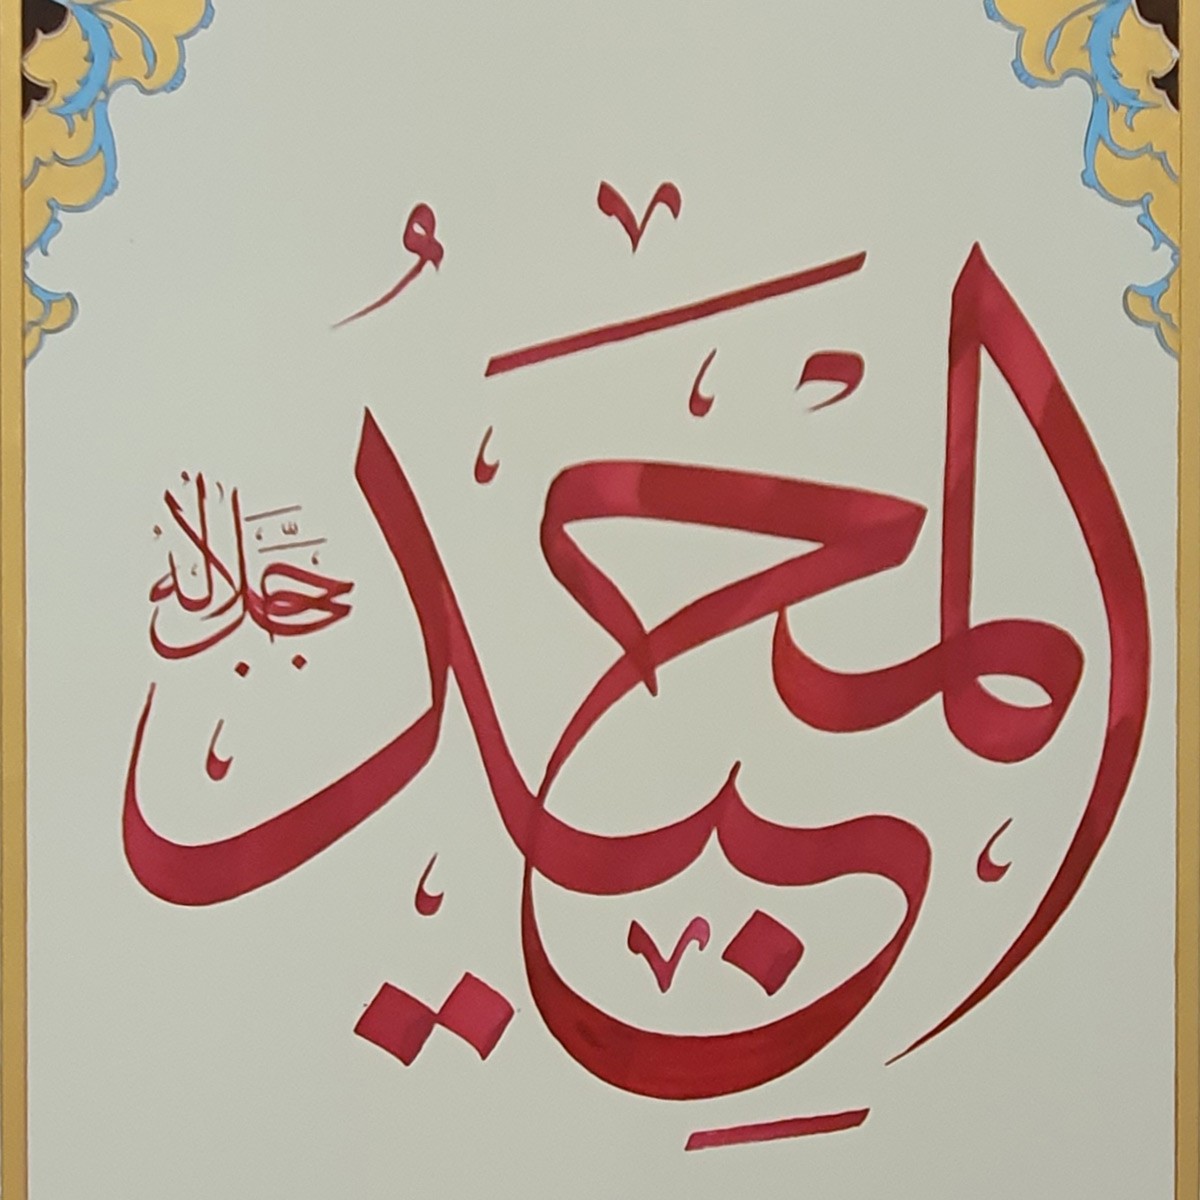 الْمَجِيدُ
جَلَّ جَلَالُهُ